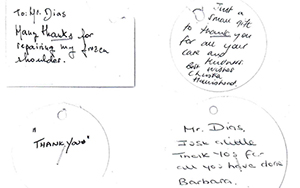 To: Mr. Dias
Many thanks for
repairing my frozen
shoulder.
Just a
small gift
to thank you
for all your
care and
kindness.
Best wishes
Christa
"THANK YOU"
Mr. Dias,
Just a little
Thank you for
all you have done
Barbara.